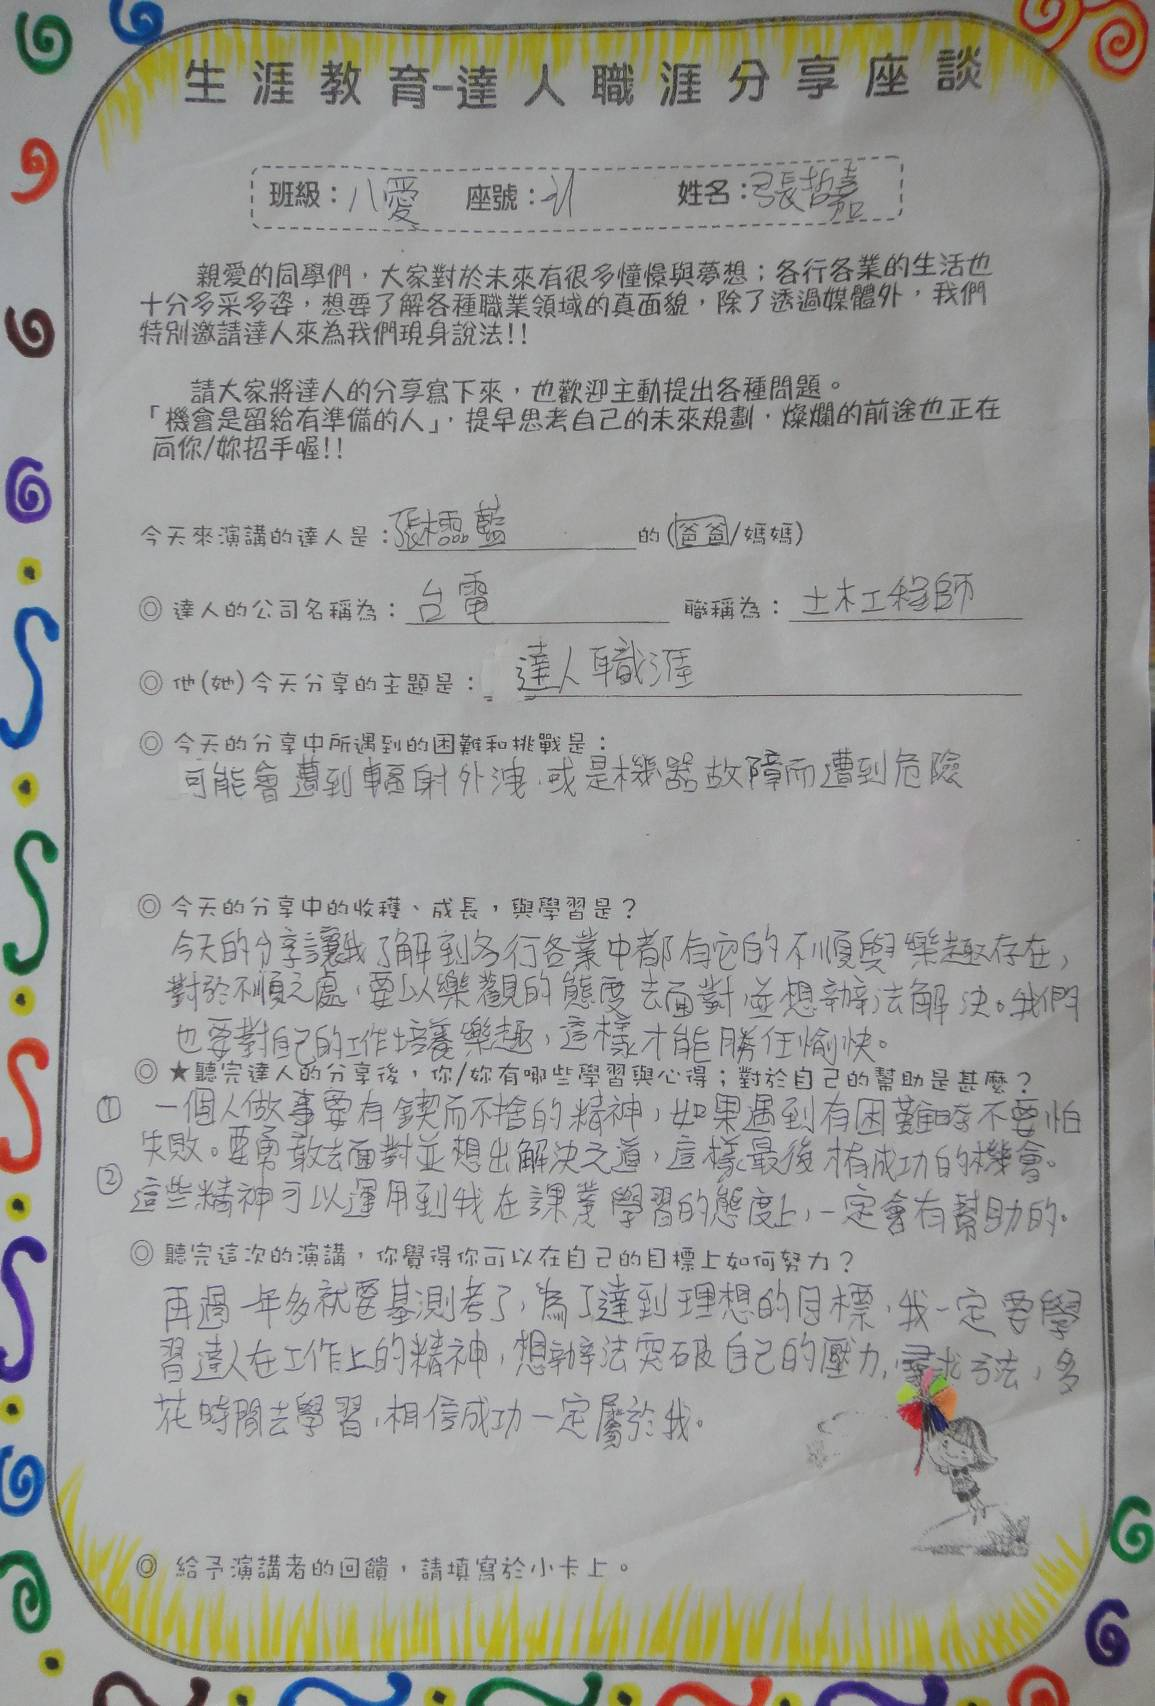 生涯教育-達人職涯分享座談
班級：八愛 座號：21 姓名：張哲嘉
親愛的同學們，大家對於未來有很多憧憬與夢想；各行各業的生活也
十分多采多姿，想要了解各種職業領域的真面貌，除了透過媒體外，我們
特別邀請達人來為我們現身說法!!
請大家將達人的分享寫下來，也歡迎主動提出各種問題。
「機會是留給有準備的人」，提早思考自己的未來規劃，燦爛的前途也正在
向你/妳招手喔!!
今天來演講的達人是：張 藍 的(爸爸/媽媽)
◎ 達人的公司名稱為：台電 職稱為：土木工程師
◎ 他(她)今天分享的主題是：達人職涯
◎ 今天的分享中所遇到的困難和挑戰是：
可能會遭到輻射外洩，或是機器故障而遭到危險
◎ 今天的分享中的收穫、成長，與學習是？
今天的分享讓我了解到各行各業中都有它的不順與樂趣存在，
對於不順之處，要以樂觀的態度去面對，並想辦法解決。我們
也要對自己的工作培養樂趣，這樣才能勝任愉快。
◎ ★聽完達人的分享後，你/妳有哪些學習與心得；對於自己的幫助是甚麼？
① 一個人做事要有鍥而不捨的精神，如果遇到有困難時不要怕
失敗。要勇敢去面對並想出解決之道，這樣最後才有成功的機會。
② 這些精神可以運用到我在課業學習的態度上，一定會有幫助的。
◎ 聽完這次的演講，你覺得你可以在自己的目標上如何努力？
再過一年多就要基測考了，為了達到理想的目標，我一定要學
習達人在工作上的精神，想辦法突破自己的壓力，尋求方法，多
花時間去學習，相信成功一定屬於我。
◎ 給予演講者的回饋，請填寫於小卡上。